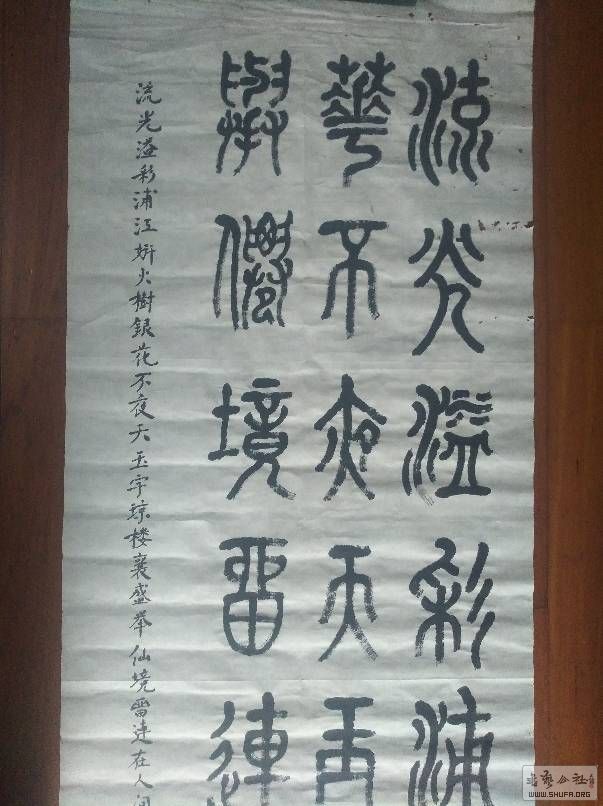 流光溢彩浦
華不夜天玉
舉僊境畱連
流光溢彩浦江妍火樹銀花不夜天玉宇琼楼襄盛举仙境畱連在人间
书艺公社
WWW.SHUFA.ORG